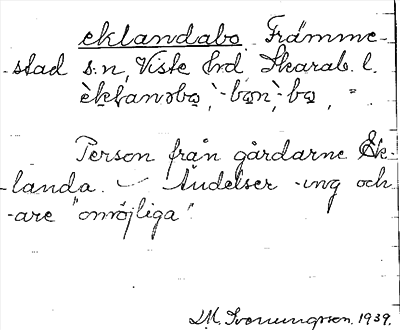 eklandabo Främme-
stad s:n, Viste hd, Skarab. l.
èklanəbo, -bon, -bo, "
Person från gårdarne Ek-
landa. – Ändelser -ing och
-are "omöjliga".
1939.